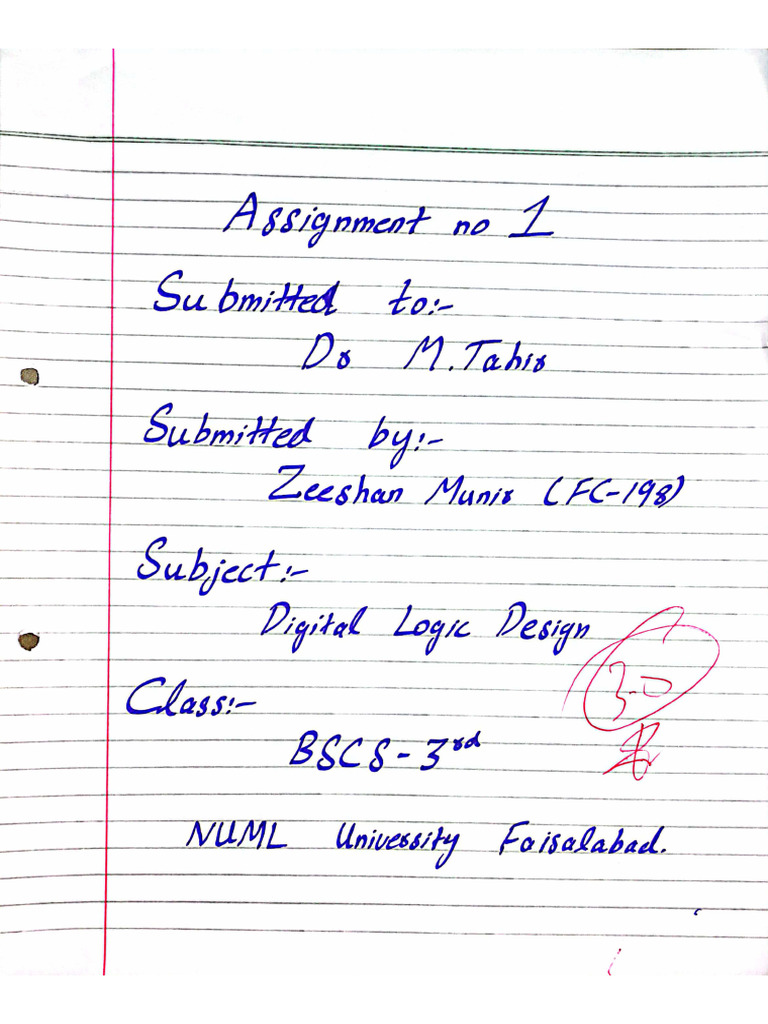 Assignment no 1
Submitted to:-
Dr M. Tahir
Submitted by:-
Zeeshan Munir (FC-198)
Subject:-
Digital Logic Design
3.0
Class:-
BSCS - 3rd
NUML University Faisalabad.